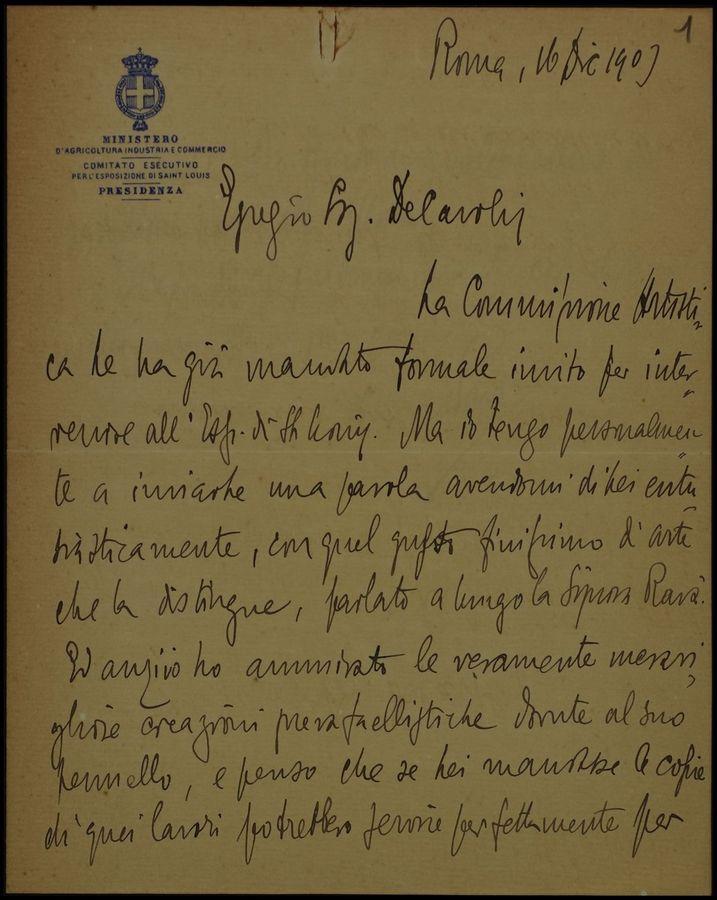 1
Roma, 16 Dic 1903
MINISTERO
D'AGRICOLTURA INDUSTRIA E COMMERCIO
COMITATO ESECUTIVO
PER L'ESPOSIZIONE DI SAINT LOUIS
PRESIDENZA
Egregio Sig. De Carolis
La Commissione Artisti-
ca Le ha già mandato formale invito per inter-
venire all' Esp. di St Louis. Ma io tengo personalmen-
te a inviarle una parola avendomi di Lei entu-
siasticamente, con quel gusto finissimo d'arte
che la distingue, parlato a lungo la Signora Ravà.
Ed anzi io ho ammirato le veramente meravi-
gliose creazioni prerafaellistiche dovute al suo
pennello, e penso che se Lei mandasse le copie
di quei lavori potrebbero servire perfettamente per